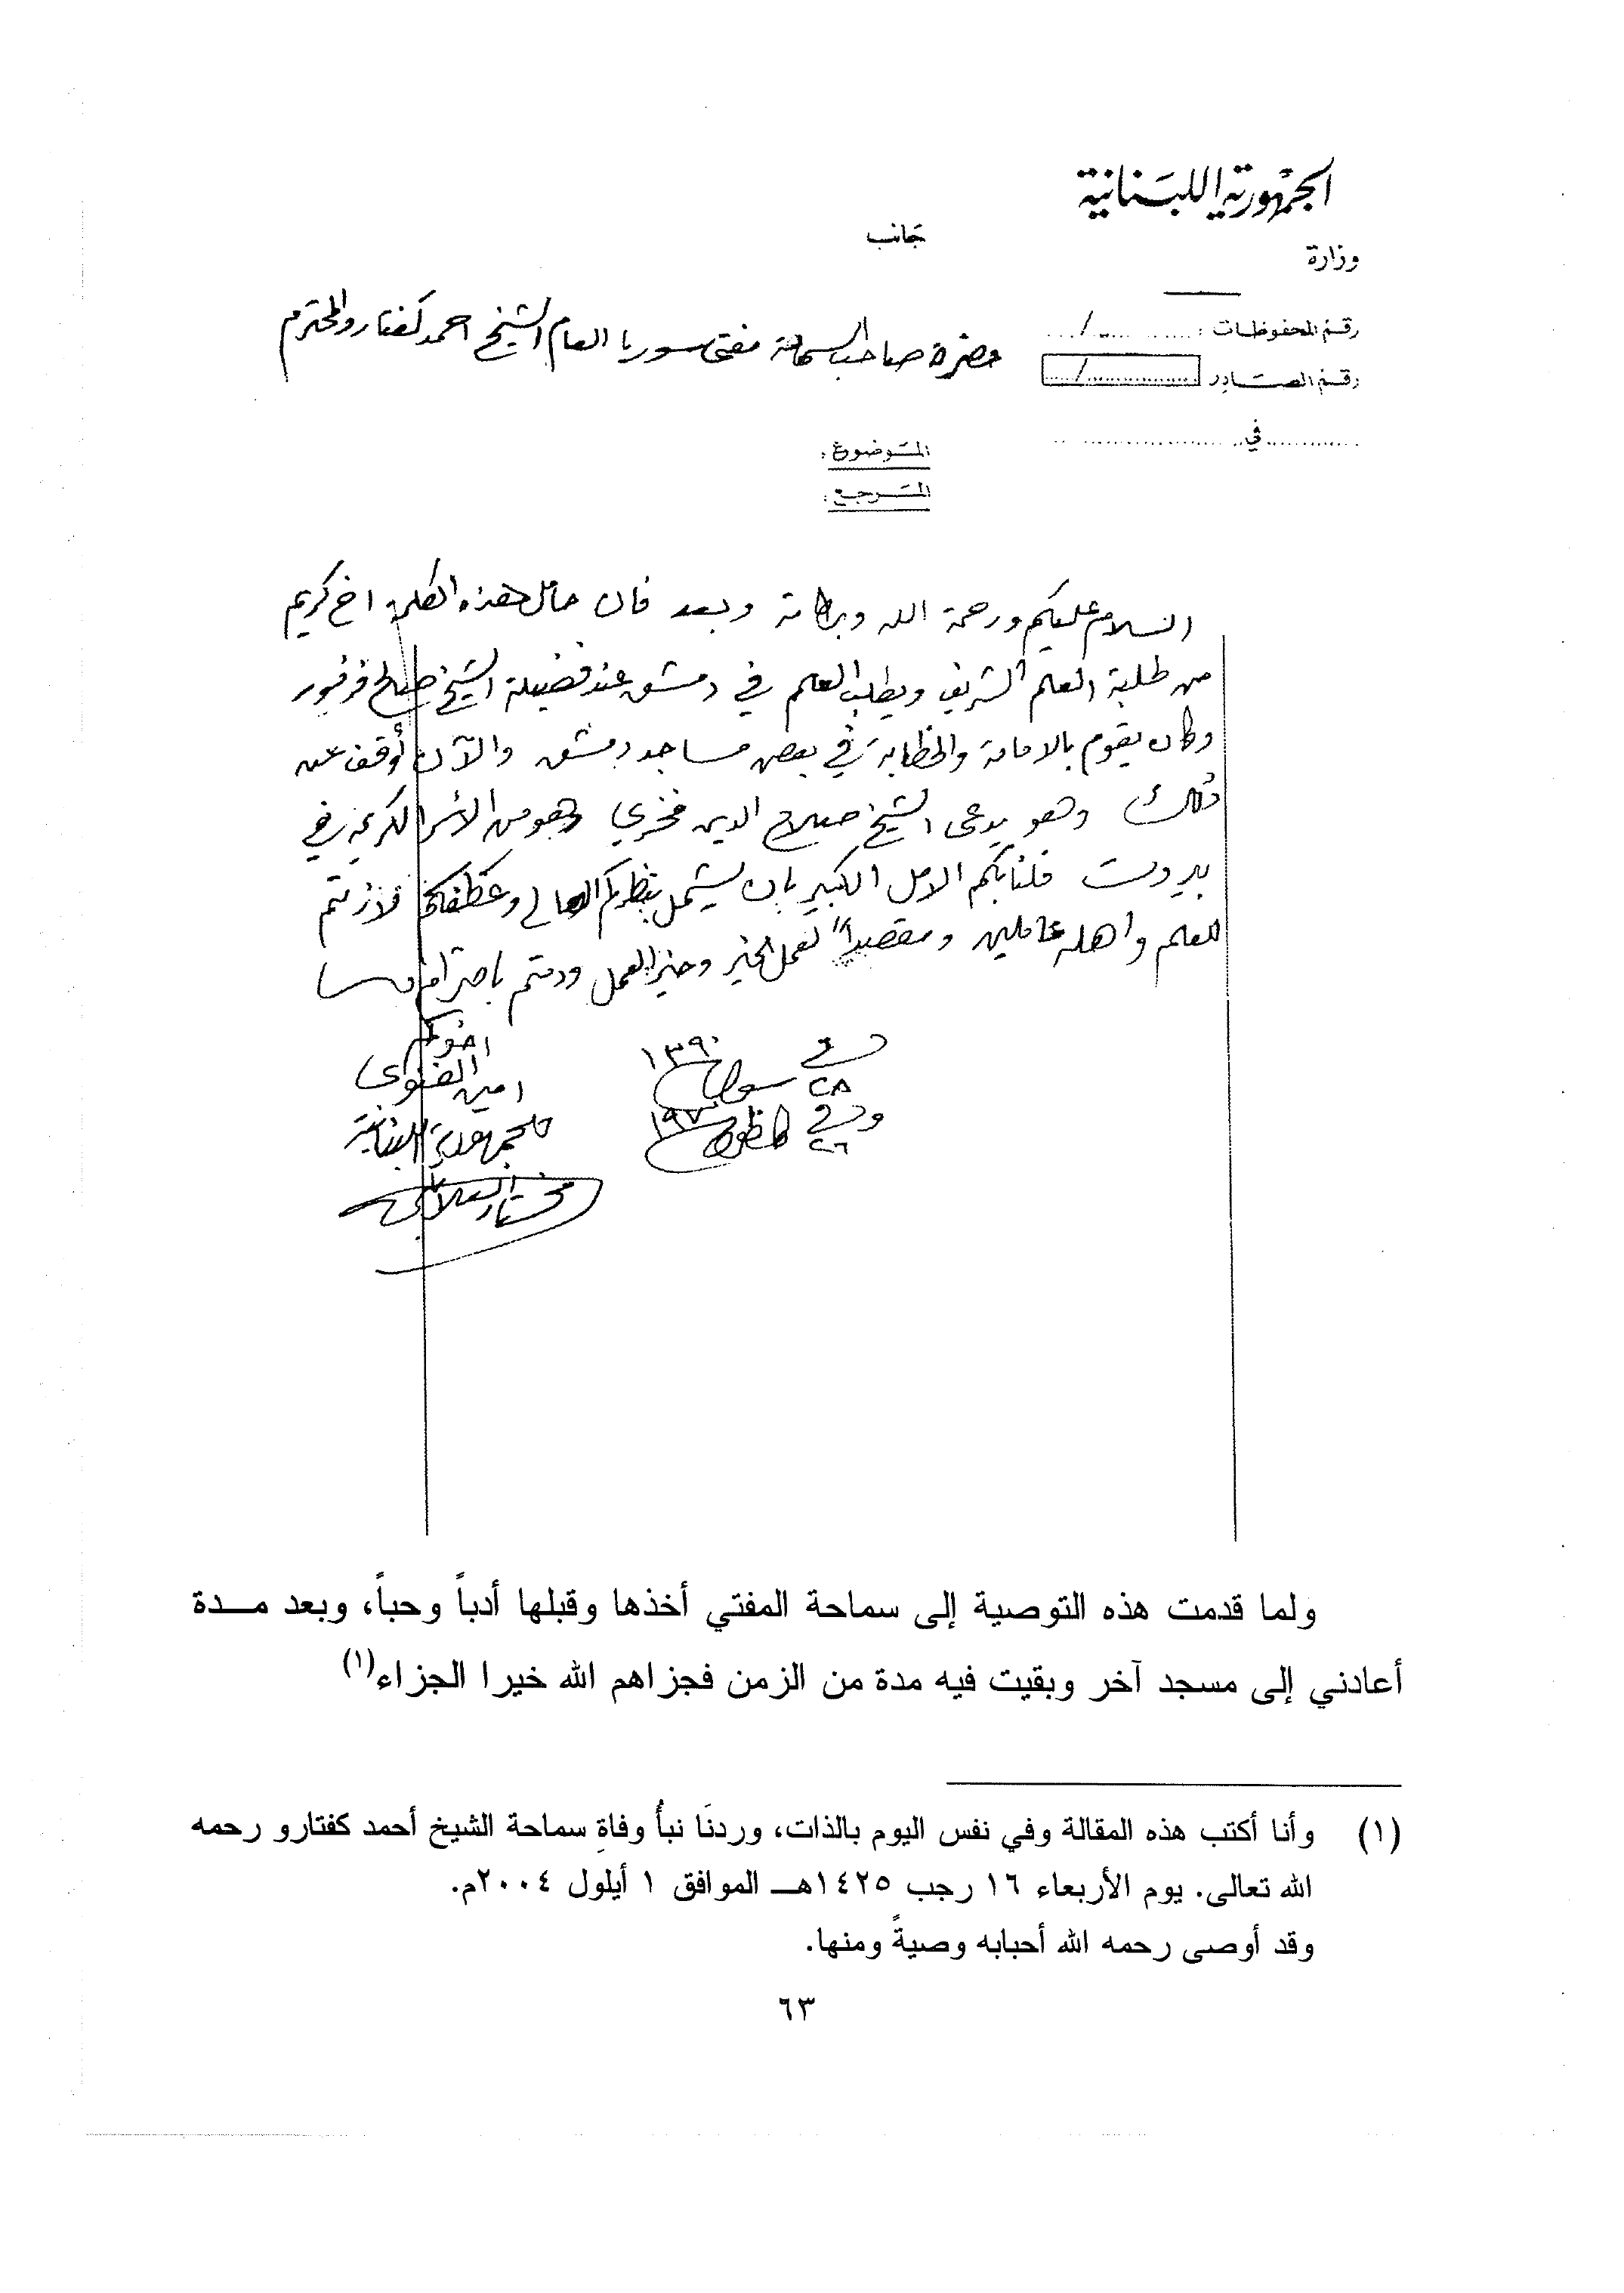 الجمهورية اللبنانية
جانب
وزارة
رقم المحفوظات : ......../...
رقم الصادر ......../...
في
حضرة صاحب السماحة مفتي سوريا العام الشيخ احمد كفتارو المحترم
الموضوع :
المرجع :
السلام عليكم ورحمة الله وبركاته وبعد فان حامل هذه الكلمة اخ كريم
من طلبة العلم الشريف ويطلب العلم في دمشق عند فضيلة الشيخ صالح فرفور
وكان يقوم بالامامة والخطابة في بعض مساجد دمشق والآن أوقف عن
ذلك وهو يدعى الشيخ صلاح الدين فخري وهو من الأسر الكريمة في
بيروت فلنا بكم الامل الكبير بان يشمل بنظركم العالي وعطفكم لازلتم
للعلم واهله عاملين ومقصداً لعمل الخير وخير العمل ودمتم باحترام
في ٢٨ شوال ١٣٩٠
وفي ٢٦ ١٩٧٠
اخوكم
امين الفتوى
للجمهورية اللبنانية
مختار العلايلي
ولما قدمت هذه التوصية إلى سماحة المفتي أخذها وقبلها أدباً وحباً، وبعد مـــدة
أعادني إلى مسجد آخر وبقيت فيه مدة من الزمن فجزاهم الله خيرا الجزاء(١)
(١) وأنا أكتب هذه المقالة وفي نفس اليوم بالذات، وردنَا نبأُ وفاةِ سماحة الشيخ أحمد كفتارو رحمه
الله تعالى. يوم الأربعاء ١٦ رجب ١٤٢٥هـــ الموافق ١ أيلول ٢٠٠٤م.
وقد أوصى رحمه الله أحبابه وصيةً ومنها.
٦٣